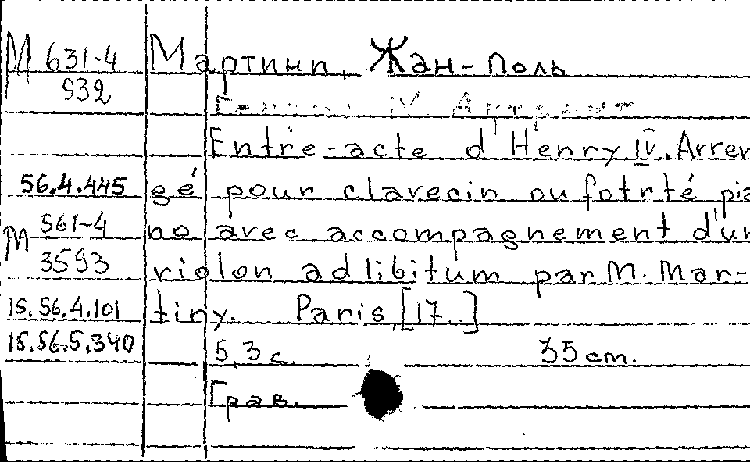 М 631-4
932
Мартини, Жан-Поль
Генрих IV. Антракт
Entre-acte d'Henry IV. Arren
56.4.445
gé pour clavecin ou fotrté pia
М 561-4
no avec accompagnement d'un
3593
violon adlibitum par M. Mar-
15.56.4.101
tiny. Paris, [17..]
15.56.5.340
5, 3 с. 35 cm.
Грав.